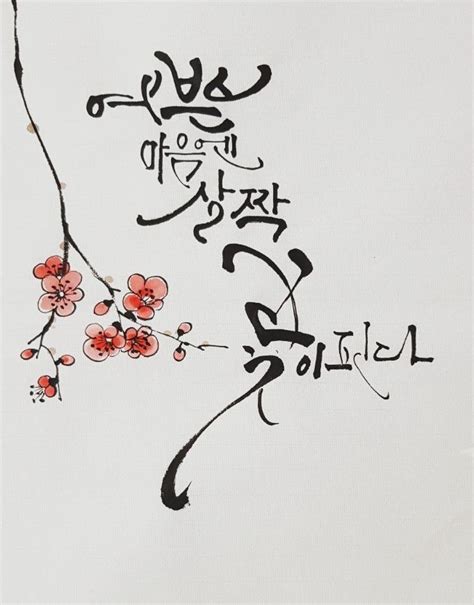 어쁜
마음엔
살짝
꽃이피다